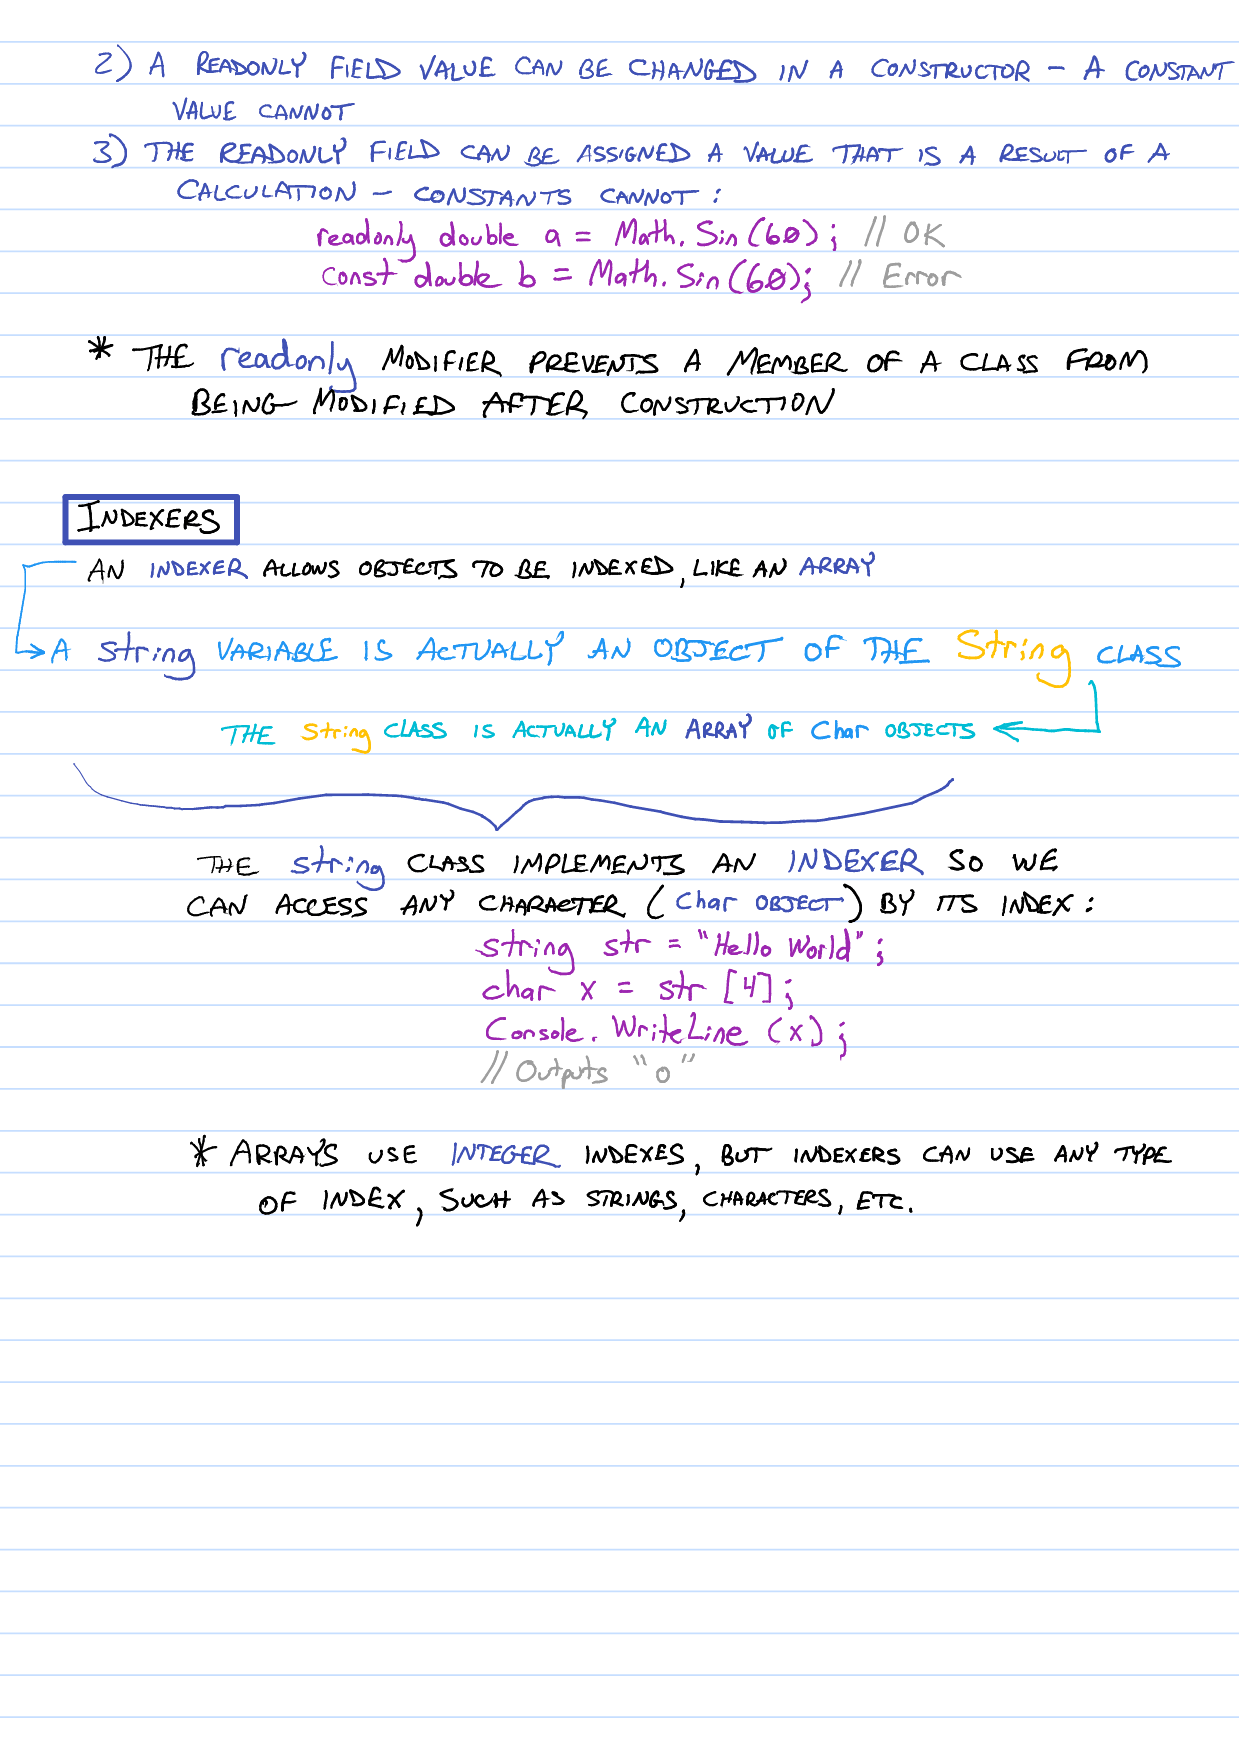 2) A READONLY FIELD VALUE CAN BE CHANGED IN A CONSTRUCTOR – A CONSTANT
VALUE CANNOT
3) THE READONLY FIELD CAN BE ASSIGNED A VALUE THAT IS A RESULT OF A
CALCULATION – CONSTANTS CANNOT:
readonly double a = Math.Sin(60); // OK
const double b = Math.Sin(60); // Error
* THE readonly MODIFIER PREVENTS A MEMBER OF A CLASS FROM
BEING MODIFIED AFTER CONSTRUCTION
INDEXERS
AN INDEXER ALLOWS OBJECTS TO BE INDEXED, LIKE AN ARRAY
A string VARIABLE IS ACTUALLY AN OBJECT OF THE String CLASS
THE String CLASS IS ACTUALLY AN ARRAY OF Char OBJECTS
THE string CLASS IMPLEMENTS AN INDEXER SO WE
CAN ACCESS ANY CHARACTER (Char OBJECT) BY ITS INDEX:
string str = "Hello World";
char x = str [4];
Console.WriteLine (x);
// Outputs "o"
* ARRAYS USE INTEGER INDEXES, BUT INDEXERS CAN USE ANY TYPE
OF INDEX, SUCH AS STRINGS, CHARACTERS, ETC.